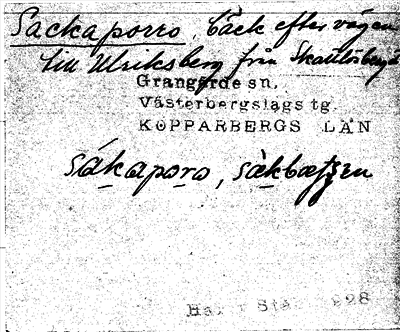 Sackaporro, Bäck efter vägen
till Ulriksberg från Skattlösberg
Grangärde sn.
Västerbergslags tg.
KOPPARBERGS LÄN
sákaporo, sàkbætsen